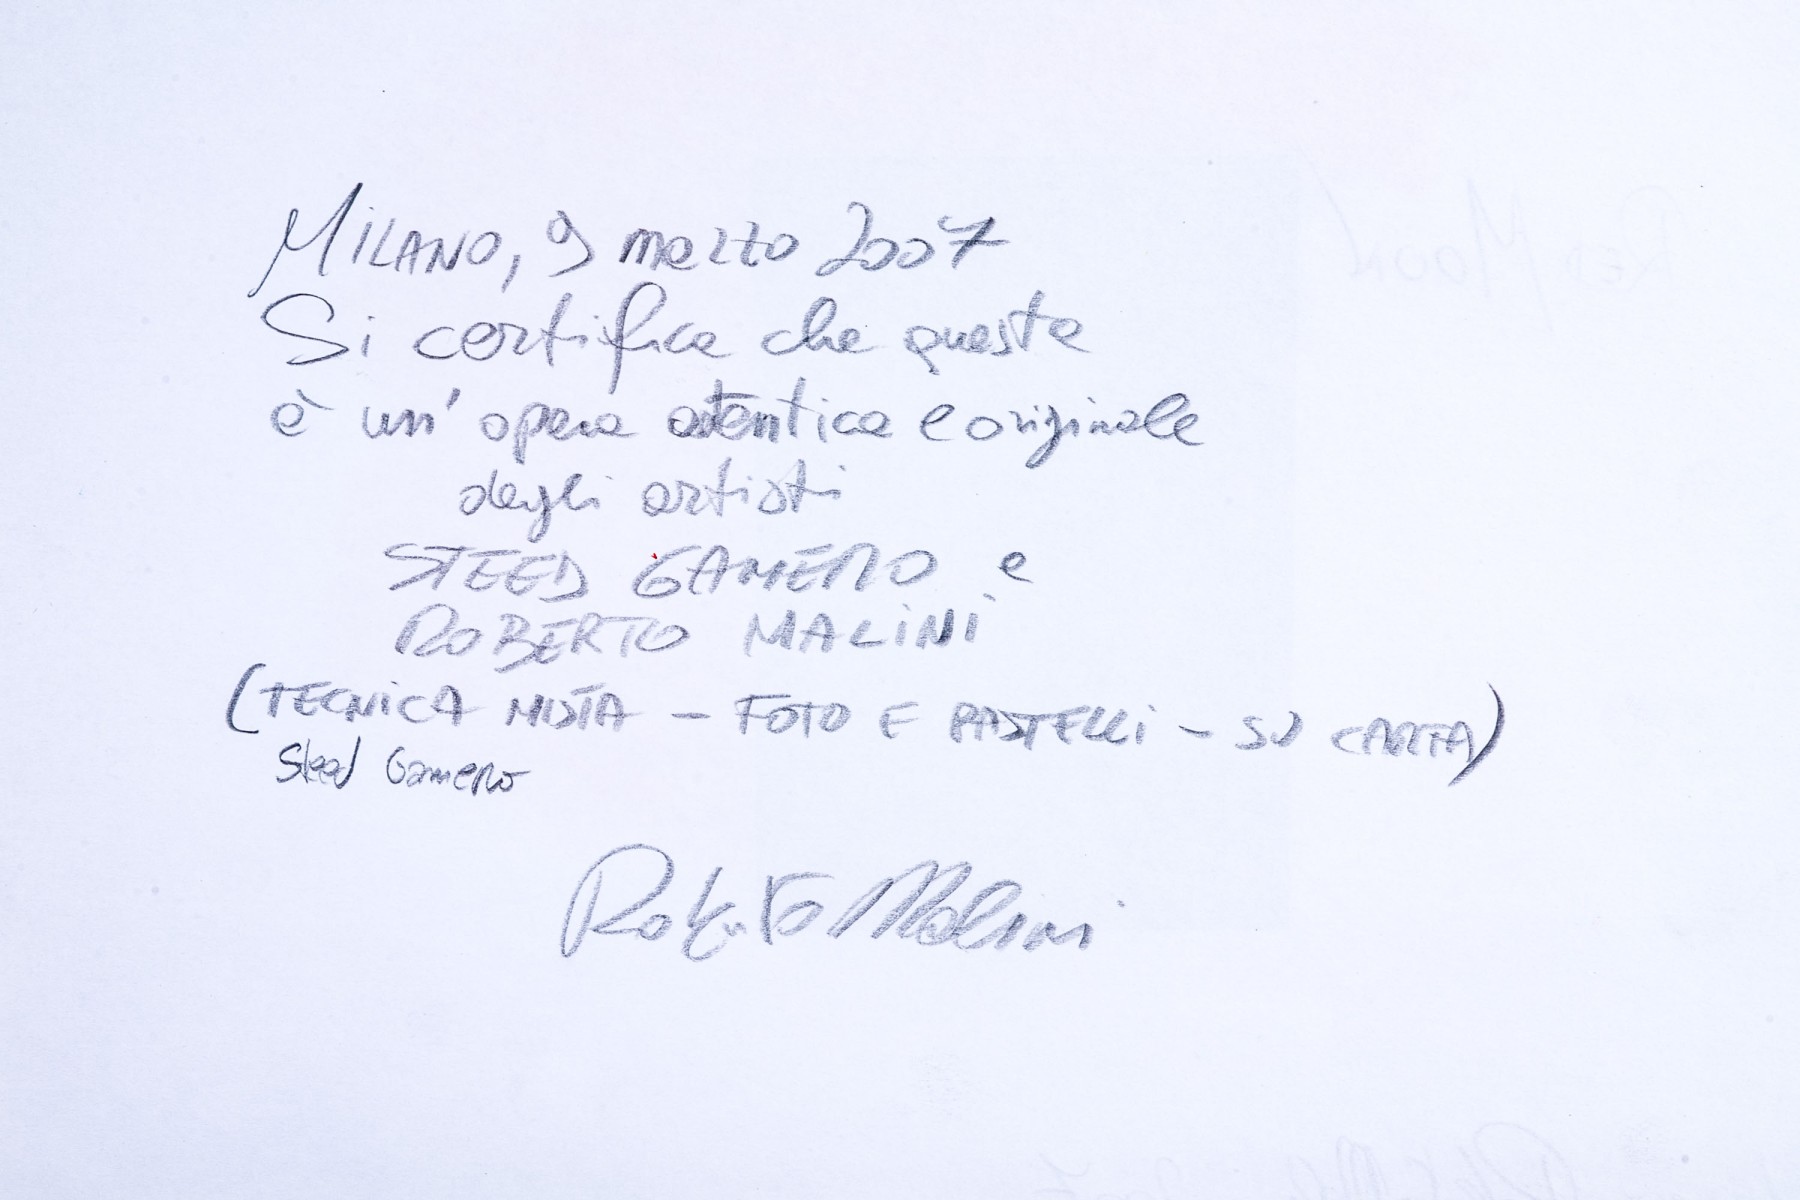 Milano, 9 marzo 2007
Si certifica che questa
è un'opera autentica e originale
degli artisti
STEED GAMERO e
ROBERTO MALINI
(TECNICA MISTA - FOTO E PASTELLI - SU CARTA)
Steed Gamero
Roberto Malini
RED MOON